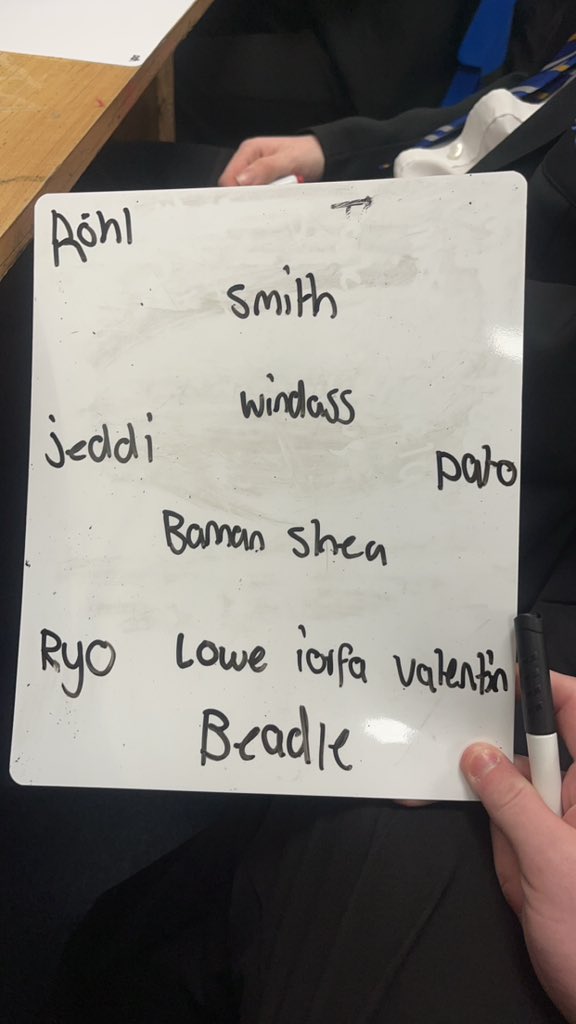 Röhl
Smith
windass
jeddi
palo
Baman Shea
Ryo Lowe iorfa valentin
Beadle